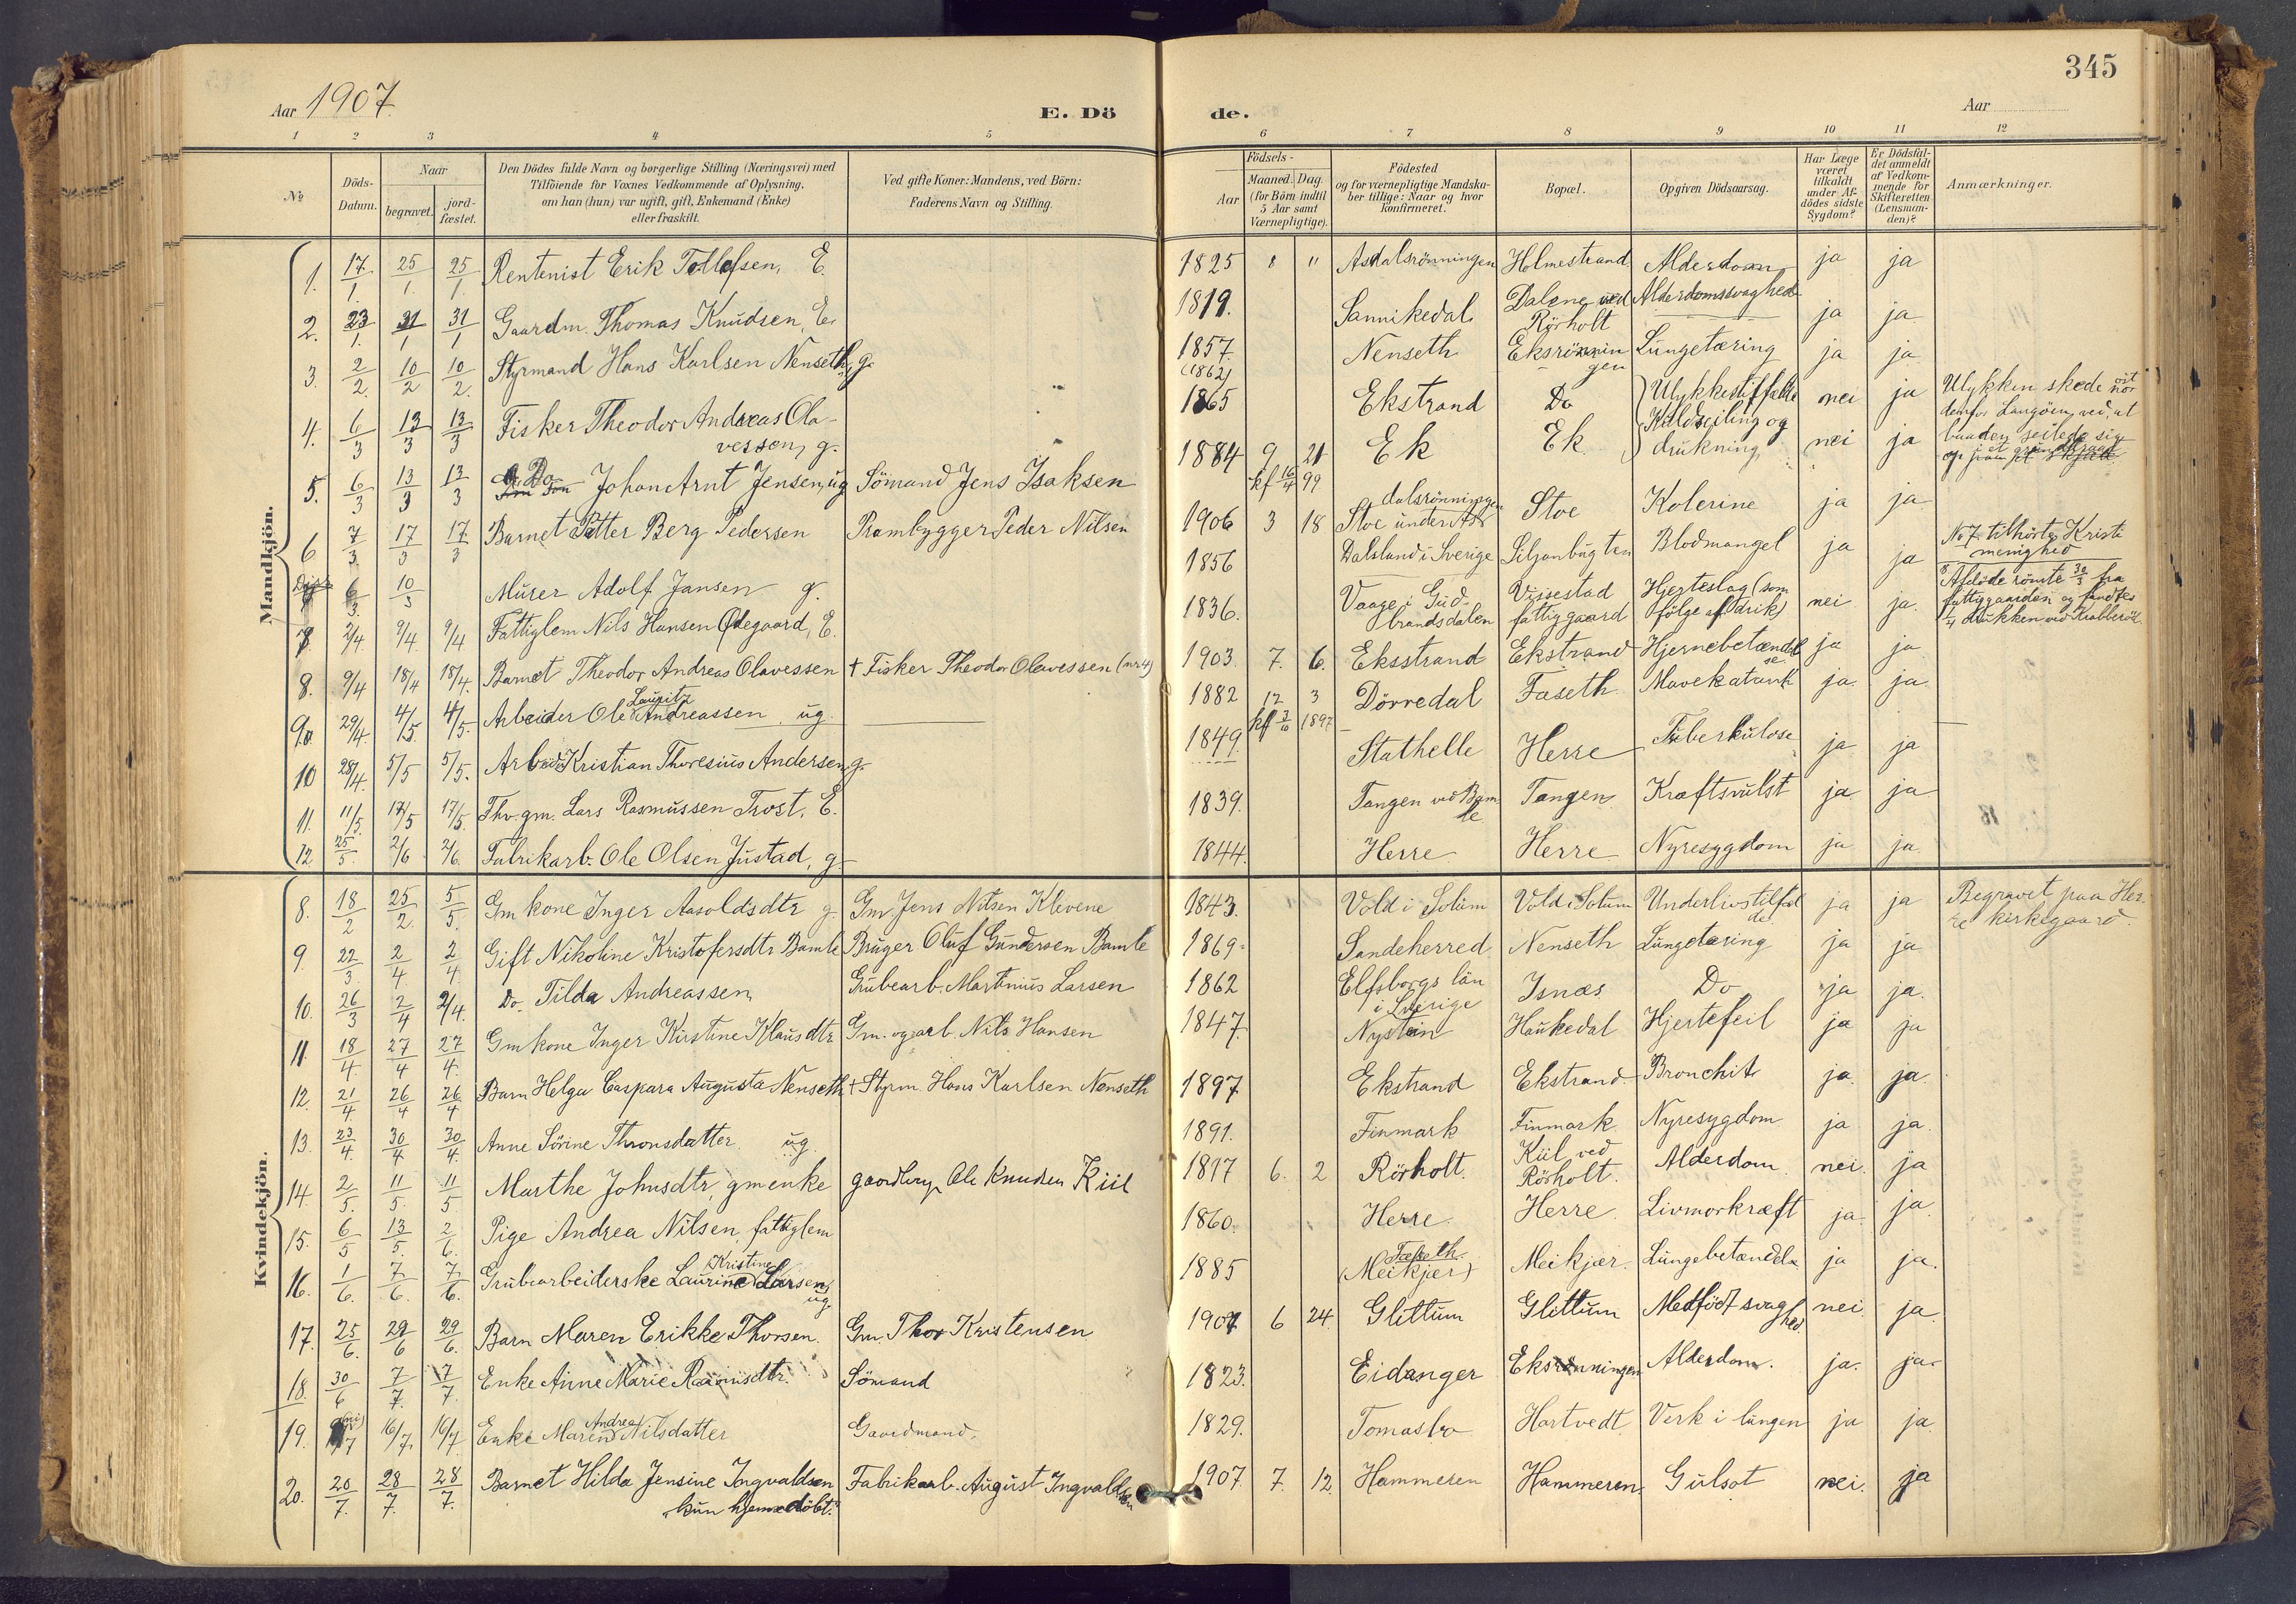 345
Aar 1907.
E. Dö de.
Aar
1 2 3 4 5 6 7 8 9 10 11 12
No
Döds-Datum.
Naar begravet. jordfæstet.
Den Dödes fulde Navn og borgerlige Stilling (Næringsvei) med
Tilföiende for Voxnes Vedkommende af Oplysning,
om han (hun) var ugift, gift, Enkemand (Enke)
eller fraskilt.
Ved gifte Koner: Mandens, ved Börn:
Faderens Navn og Stilling.
Födsels-
Aar Maaned. Dag.
(for Börn indtil 5 Aar samt Værnepligtige).
Födested
og for værnepligtige Mandskaber tillige: Naar og hvor Konfirmeret.
Bopæl.
Opgiven Dödsaarsag.
Har Læge været tilkaldt under Afdödes sidste Sygdom?
Er Dödsfaldet anmeldt af Vedkommende for Skifteretten (Lensmanden)?
Anmærkninger.
Mandkjön.
1. 17/1. 25/1. 25/1. Rentenist Erik Tollefsen, E. 1825 " " Asdalsrönningen Holmestrand Alderdom ja ja
2. 23/1. 31/1 31/1 Gaardm. Thomas Knudsen, E. 1819. Sannikedal Dalene ved Rörholt Alderdomssvaghed ja ja
3. 2/2. 10/2 10/2. Styrmand Hans Karlsen Nenseth, g. 1857. (1862) Nenseth Eksrönningen Lungetæring ja ja
4. 6/3 13/3 13/3 Fisker Theodor Andreas Olavessen, g. 1865 Ekstrand Do Ulykkestilfælde Kuldseiling og drukning nei ja Ulykken skede
5. 6/3 13/3 13/3 Do Johan Arnt Jensen, ug Sömand Jens Isaksen 1884 9 21 kf 16/4 99 Ek Ek nei ja
6 7/3. 17/3 17/3 Barnet Petter Berg Pedersen Prambygger Peder Nilsen 1906 3 18 Stoe under Asdalsrönningen Stoe Kolerine ja ja
6/3. 10/3 Murer Adolf Jansen g. 1856 Dalsland i Sverige Siljanbugten Blodmangel ja ja No 7 tilhörte Kristi menighed
7. 2/4. 9/4 9/4 Fattiglem Nils Hansen Ödegaard, E. 1836. Vaage i Gudbrandsdalen Vissestad fattiggaard Hjerteslag (som fölge af drik) nei ja. Afdöde römte 30/3 fra fattiggaarden og fandtes
8. 9/4 18/4 18/4. Barnet Theodor Andreas Olavessen † Fisker Theodor Olavessen (nr 4) 1903. 7. 6. Eksstrand Ekstrand Hjernebetændelse ja ja
9. 29/4. 4/5. 4/5. Arbeider Ole Lauritz Andreassen, ug. 1882 12 3 kf 3/10 1897 Dörredal Faseth Mavekatarrh ja ja.
10 28/4. 5/5 5/5. Arbeid. Kristian Thoresius Andersen, g. 1849. Stathelle Herre Tuberkulose ja ja
11. 11/5. 17/5 17/5. Fhv. gm. Lars Rasmussen Trost, E. 1839. Tangen ved Bamle Tangen Kræftsvulst ja ja
12. 25/5. 2/6 2/6. Fabrikarb. Ole Olsen Justad, g 1844. Herre Herre Nyresygdom ja ja
Kvindekjön.
8. 18/2 25/2. 5/5. Gm kone Inger Aasoldsdtr g. Gm. Jens Nilsen Klevene 1843. Vold i Solum Vold i Solum Underlivstilfælde ja ja Begravet paa Herre kirkegaard.
9. 22/3 2/4. 2/4. Gift Nikoline Kristofersdtr Bamle Bruger Oluf Gundersen Bamle 1869. Sandeherred Nenseth Lungetæring ja ja
10. 26/3 2/4 2/4. Do. Tilda Andreassen Grubearb. Martinius Larsen 1862 Elfsborgs län i Sverige Isnæs Do ja ja.
11. 18/4 27/4 27/4. Gm kone Inger Kirstine Klausdtr Gm. og arb. Nils Hansen 1847. Nystein Haukedal Hjertefeil ja ja
12. 21/4. 26/4 26/4 Barn Helga Caspara Augusta Nenseth † Styrm. Hans Karlsen Nenseth 1897 Ekstrand Ekstrand Bronchit ja ja.
13. 23/4. 30/4 30/4. Anne Sörine Thronsdatter ug 1891. Finmark Finmark Nyresygdom ja ja.
14. 2/5. 11/5. 11/5. Marthe Johnsdtr, gmenke gaardbrug. Ole Knudsen Kiil 1817 6. 2 Rörholt. Kiil ved Rörholt. Alderdom nei. ja
15. 6/5 13/5. 2/6. Pige Andrea Nilsen, fattiglem 1860. Herre Herre Livmorkræft ja ja.
16. 1/6. 7/6. 7/6. Grubearbeiderske Laurine Kristine Larsen, ug. 1885 Faseth. (Meikjær) Meikjær. Lungebetændelse ja ja.
17. 25/6. 29/6 29/6. Barn Maren Erikke Thorsen. Gm. Thor Kristensen 1907 6 24. Glittum Glittum Medfödt svaghed nei ja.
18. 30/6 7/7. 7/7. Enke Anne Marie Rasmusdtr. Sömand 1823. Eidanger Eksrönningen Alderdom. ja. ja.
19. 16/7. 16/7 Enke Maren Andrea Nilsdatter Gaardmand. 1829. Tomasbo Hartvedt Verk i lungen ja ja.
20. 20/7. 28/7. 28/7. Barnet Hilda Jensine Ingvaldsen kun hjemmedöbt. Fabrikarb. August Ingvaldsen 1907. 7. 12 Hammeren Hammeren. Gulsot nei. ja